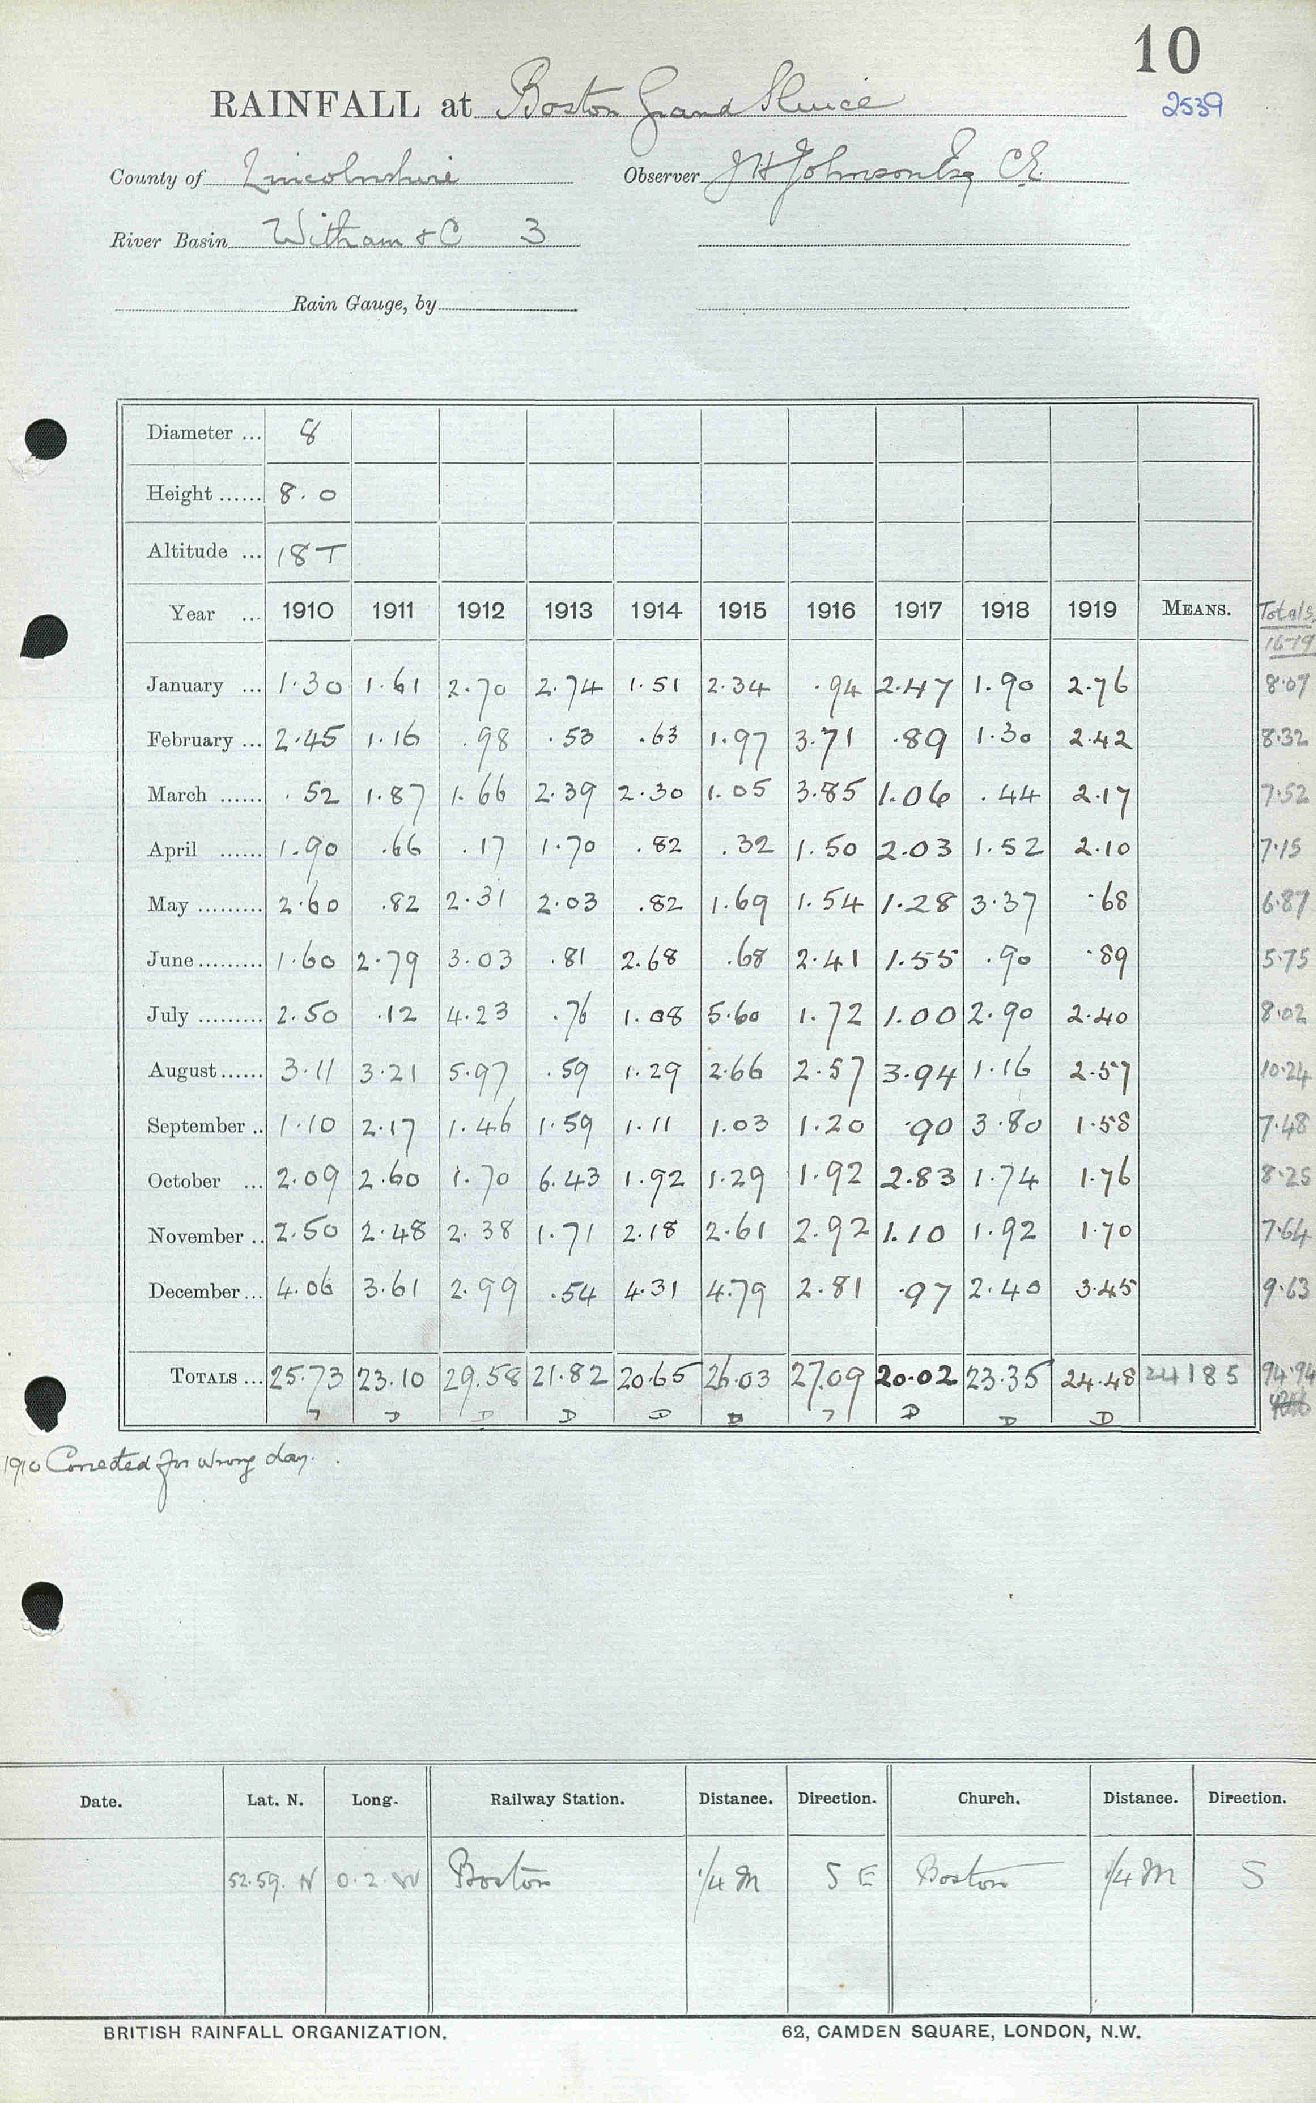 10
RAINFALL at Boston Grand Sluice 2539
County of Lincolnshire Observer J H Johnson Esq CE
River Basin Witham & C 3
Rain Gauge, by
Diameter ... 8
Height ...... 8.0
Altitude ... 18 T
Year ... 1910 1911 1912 1913 1914 1915 1916 1917 1918 1919 MEANS. Totals 16-19
January ... 1.30 1.61 2.70 2.74 1.51 2.34 .94 2.47 1.90 2.76 8.07
February ... 2.45 1.16 .98 .53 .63 1.97 3.71 .89 1.30 2.42 8.32
March ...... .52 1.87 1.66 2.39 2.30 1.05 3.85 1.06 .44 2.17 7.52
April ...... 1.90 .66 .17 1.70 .82 .32 1.50 2.03 1.52 2.10 7.15
May ......... 2.60 .82 2.31 2.03 .82 1.69 1.54 1.28 3.37 .68 6.87
June ......... 1.60 2.79 3.03 .81 2.68 .68 2.41 1.55 .90 .89 5.75
July ......... 2.50 .12 4.23 .76 1.08 5.60 1.72 1.00 2.90 2.40 8.02
August ...... 3.11 3.21 5.97 .59 1.29 2.66 2.57 3.94 1.16 2.57 10.24
September .. 1.10 2.17 1.46 1.59 1.11 1.03 1.20 .90 3.80 1.58 7.48
October ... 2.09 2.60 1.70 6.43 1.92 1.29 1.92 2.83 1.74 1.76 8.25
November .. 2.50 2.48 2.38 1.71 2.18 2.61 2.92 1.10 1.92 1.70 7.64
December ... 4.06 3.61 2.99 .54 4.31 4.79 2.81 .97 2.40 3.45 9.63
TOTALS ... 25.73 23.10 29.58 21.82 20.65 26.03 27.09 20.02 23.35 24.48 24185 94.94
D D D D D D D D
1910 Corrected for wrong day.
Date. Lat. N. Long. Railway Station. Distance. Direction. Church. Distance. Direction.
52.59. N 0.2 W Boston 1/4 M S E Boston 1/4 M S
BRITISH RAINFALL ORGANIZATION. 62, CAMDEN SQUARE, LONDON, N.W.